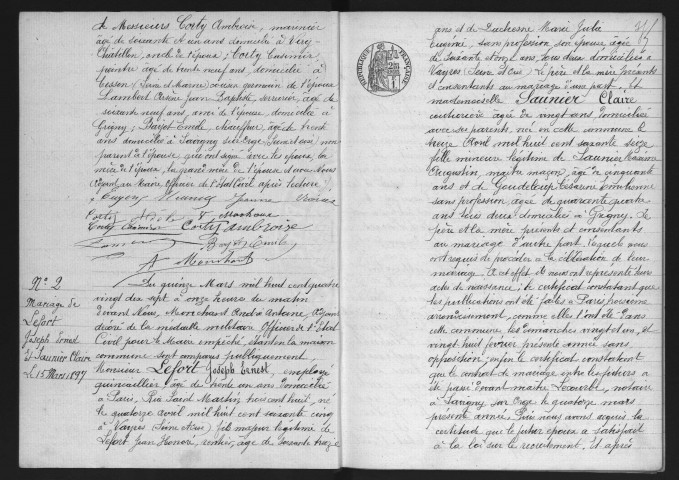 de Messieurs Corty Ambroise, marinier
âgé de soixante et un ans domicilié à Viry-
Châtillon, oncle de l'époux ; Corty Casimir,
peintre âgé de trente neuf ans, domicilié à
Cesson (Seine et Marne) cousin germain de l'époux
Lambert Arsène Jean Baptiste, serrurier, âgé de
soixante neuf ans, ami de l'épouse, domicilié à
Grigny ; Émile, chauffeur, âgé de trente
ans domicilié à Savigny sur Orge (Seine et Oise) non
parent à l'épouse, qui ont signé avec les époux, la
mère de l'époux, la grand'mère de l'époux et avec Nous
adjoint au Maire Officier de l'État Civil après lecture.
Jeanne
Corty
Corty Casimir Corty Ambroise
Émile
A Marchand
N° 2
Mariage de
Lefort
Joseph Ernest
et Saunier Claire
Le 15 Mars 1897
Du quinze Mars mil huit cent quatre
vingt dix sept à onze heures du matin
Devant Nous, Marchand André Antoine, adjoint
décoré de la médaille militaire Officier de l'État
Civil pour le Maire empêché, étant en la maison
commune sont comparus publiquement,
Monsieur Lefort Joseph Ernest, employé
quincaillier âgé de trente un ans domicilié
à Paris, Rue Saint Martin trois cent huit, né
le quatorze avril mil huit cent soixante cinq
à Vayres (Seine et Oise) fils majeur légitime de
Lefort Jean Honoré, rentier, âgé de soixante treize
RÉPUBLIQUE FRANÇAISE
ans et de Duchesne Marie Julie
Eugénie, sans profession son épouse âgée
de soixante et onze ans, tous deux domiciliés à
Vayres (Seine et Oise) Le père et la mère présents
et consentants au mariage d'une part. Et
mademoiselle Saunier Claire
couturière âgée de vingt ans domiciliée
avec ses parents, née en cette commune le
treize Août mil huit cent soixante seize
fille mineure légitime de Saunier
Augustin, maître maçon, âgé de cinquante
ans et de Césarine
sans profession, âgée de quarante quatre
ans tous deux domiciliés à Grigny. Le
père et la mère présents et consentants
au mariage d'autre part. Lesquels nous
ont requis de procéder à la célébration de leur
mariage. À cet effet ils nous ont représenté leurs
actes de naissance ; le certificat constatant que
les publications ont été faites à Paris troisième
arrondissement, comme elles l'ont été dans
cette commune, les dimanches vingt et un, et
vingt huit février présente année sans
opposition ; enfin le certificat constatant
que le contrat de mariage entre les futurs a
été passé devant maître notaire
à Savigny sur Orge le quatorze mars
présente année. Puis nous avons acquis la
certitude que le futur époux a satisfait
à la loi sur le recrutement. Et après